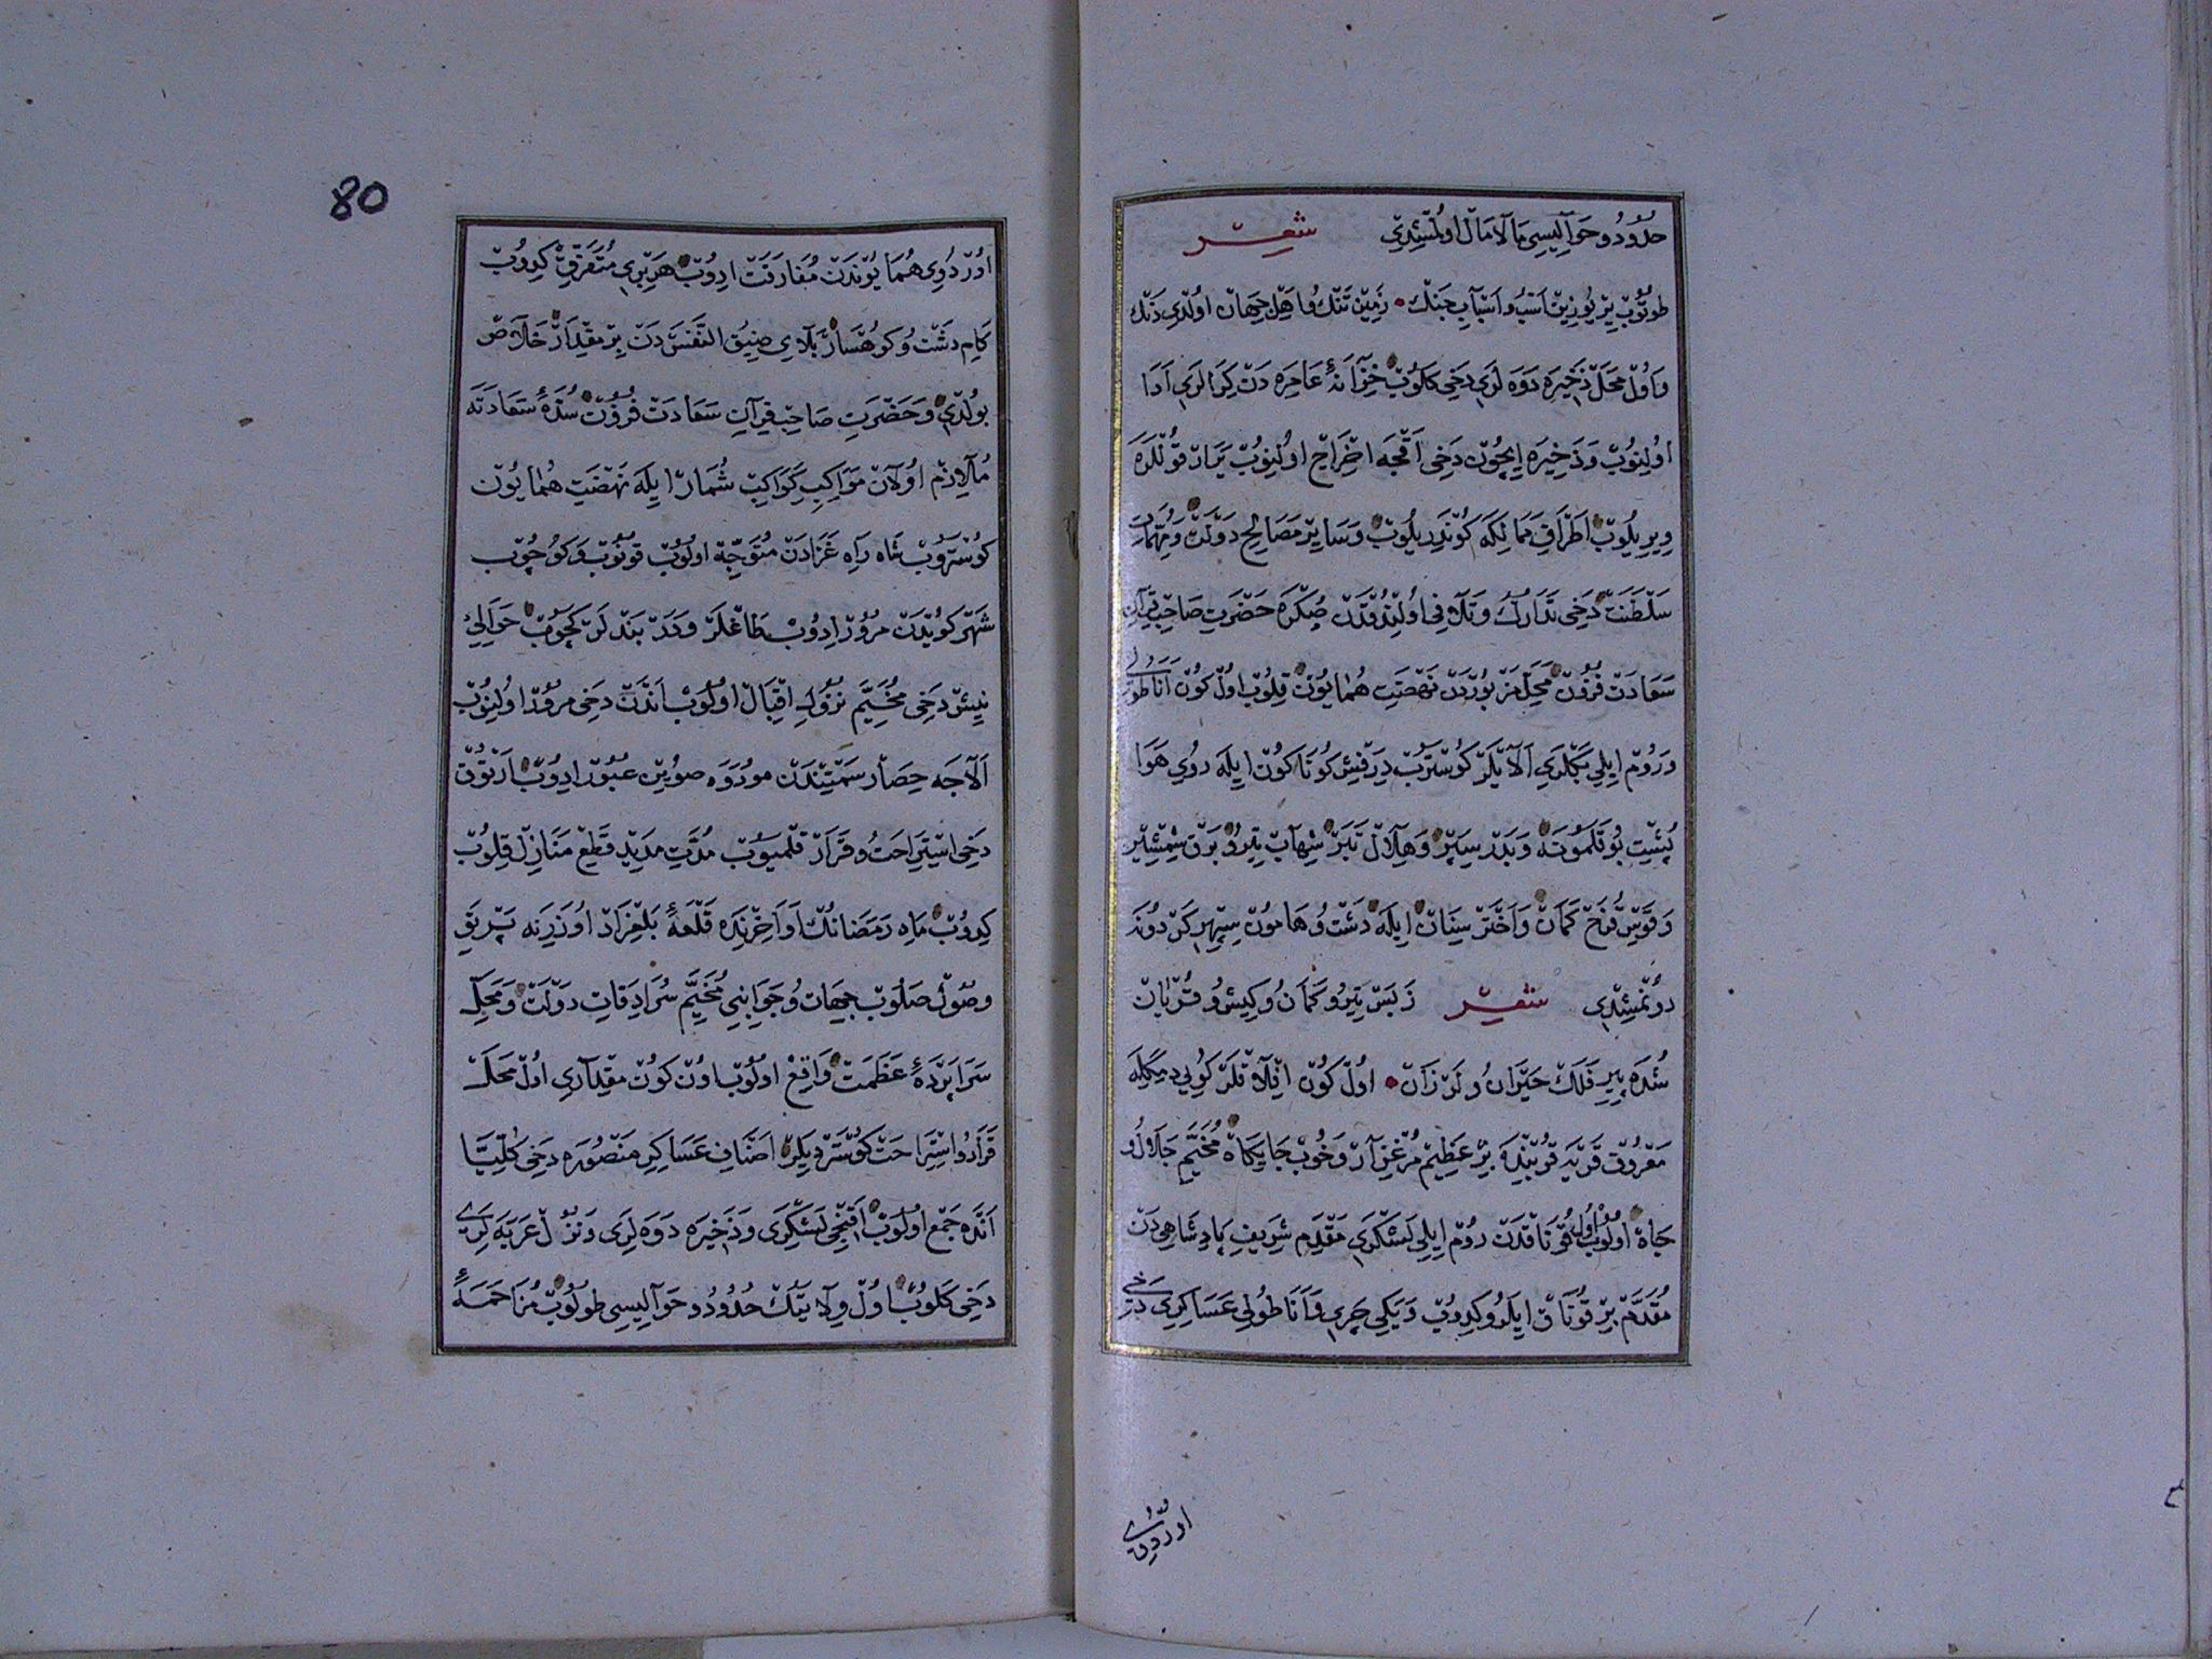 حدود و حوالیسی مالامال اولمشیدی شعر
طوتوب یر یوزین اسب و اسباب جنك • زمین تنك و اهل جهان اولدی دنك
و اول محلّ ذخیره دوه لری دخی كلوب خزانهٔ عامره دن كرالری ادا
اولنوب و ذخیره ایچون دخی اقچه اخراج اولنوب یرار قوللره
ویریلوب اطراف ممالكه كوندریلوب و سایر مصالح دولت و مهمّات
سلطنت دخی تدارك و تلافی اولندقدن صكره حضرت صاحبقران
سعادت فزون محلّ مزبوردن نهضت همایون قلوب اول كون اناطولی
و روم ایلی بكلری الایلر كوستروب درفش كوناكون ایله روی هوا
پشت بوقلمونه و بدر سپر و هلال تبر شهاب تیر و برق شمشیر
و قوس قزح كمان و اختر سنان ایله دشت و هامون سپهر كردونه
دونمشیدی شعر ز بس تیر و كمان و كیش و قربان
شده پیر فلك حیران و لرزان • اول كون افلاقلر كویی دیمكله
معروف قریه قربنده بر عظیم مرغزار و خوب جایكاه مخیّم جلال و
جاه اولوب اول قوناقدن روم ایلی لشكری مقدم شریف پادشاهیدن
مقدّم بر قوناق ایلرو كیدوب و یكی چری و اناطولی عساكری دخی
اوردوی
80
اوردوی همایوندن مفارقت ادوب هر بری متفرّق كیدوب
كام دشت و كوهسار بلای ضیق النفسدن بر مقدار خلاص
بولدی و حضرت صاحبقران سعادت فزون سدّهٔ سعادته
ملازم اولان مواكب كواكب شمار ایله نهضت همایون
كوستروب شاه راه غزادن متوجّه اولوب قونوب و كوچوب
شهركویدن مرور ادوب طاغلر و دربندلر كچوب حوالیٔ
نیش دخی مخیّم نزول اقبال اولوب اندن دخی مرور اولنوب
الاجه حصار سمتیندن موروه صوین عبور ادوب ارتوق
دخی استراحت و قرار قلمیوب مدّت مدید قطع منازل قلوب
كیدوب ماه رمضانك اواخرنده قلعهٔ بلغراد اوزرینه پرتو
وصول صلوب جهات و جوانبی مخیّم سرادقات دولت و محلّ
سراپردهٔ عظمت واقع اولوب اون كون مقداری اول محلده
قرار و استراحت كوستردیلر اصناف عساكر منصوره دخی كلیّا
انده جمع اولوب اقنجی لشكری و ذخیره دوه لری و نزل عربه لری
دخی كلوب اول ولایتك حدود و حوالیسی طولوب مزاحمهٔ